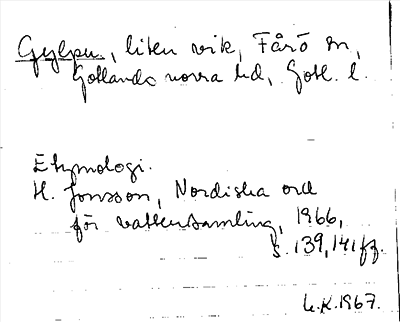 Gylpu, liten vik, Fårö sn,
Gotlands norra hd, Gotl. l.
Etymologi.
H. Jonsson, Nordiska ord
för vattensamling, 1966,
s. 139, 141 ff.
L.K. 1967.